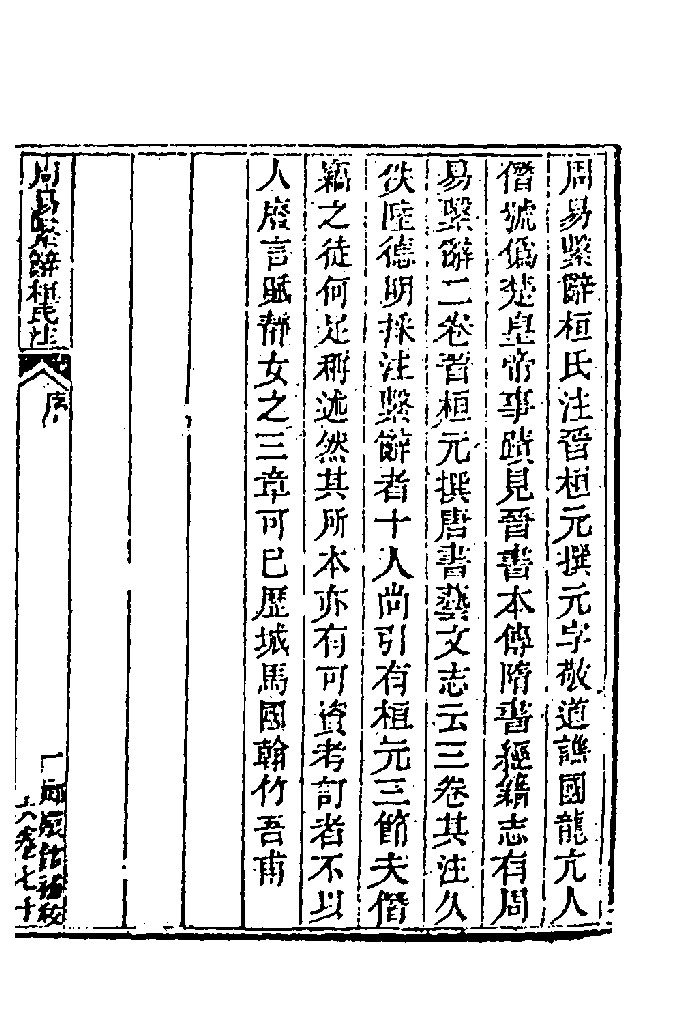 周易繫辭桓氏注晉桓元撰元字敬道譙國龍亢人
僭號僞楚皇帝事蹟見晉書本傳隋書經籍志有周
易繫辭二卷晉桓元撰唐書藝文志云三卷其注久
佚陸德明採注繫辭者十人尚引有桓元三節夫僭
竊之徒何足稱述然其所本亦有可資考訂者不以
人廢言賦靜女之三章可已歷城馬國翰竹吾甫
周易繫辭桓氏注
序
一
補校
六卷七十